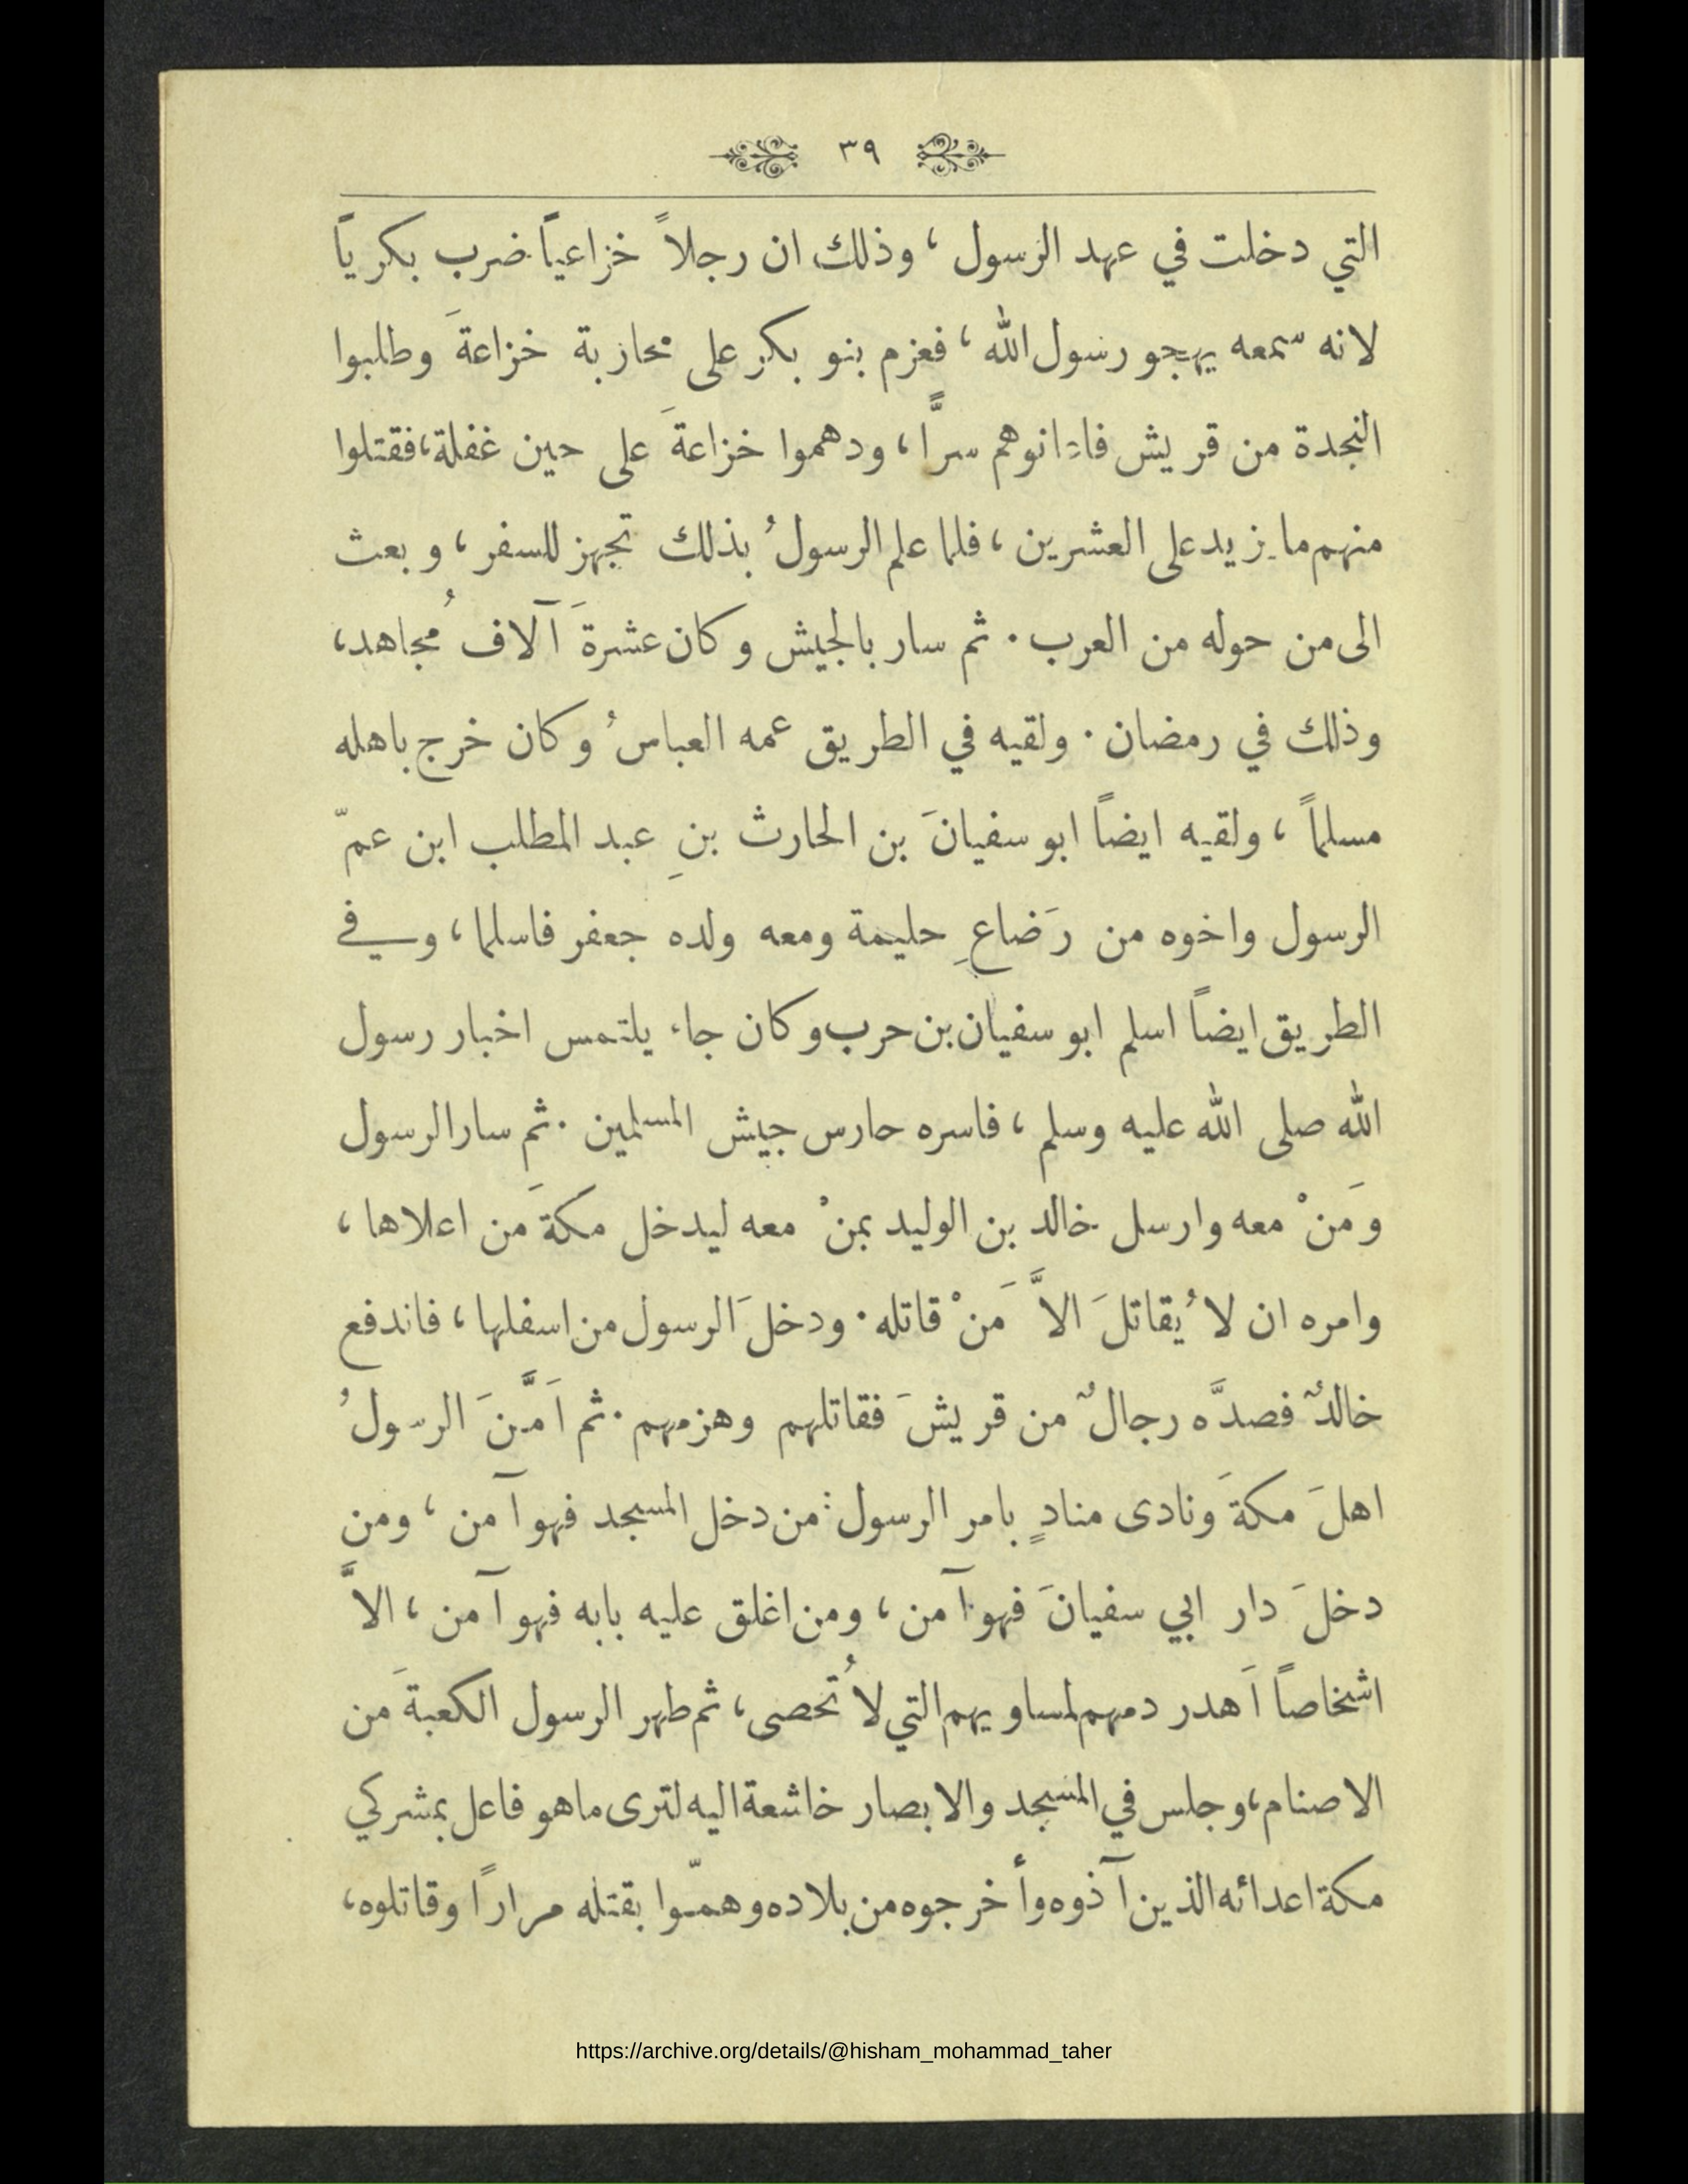 ٣٩
التي دخلت في عهد الرسول ، وذلك ان رجلاً خزاعياً ضرب بكرياً
لانه سمعه يهجو رسول الله ، فعزم بنو بكر على محاربة خزاعةَ وطلبوا
النجدة من قريش فاعانوهم سرًّا ، ودهموا خزاعةَ على حين غفلة، فقتلوا
منهم ما يزيد على العشرين ، فلما علم الرسولُ بذلك تجهز للسفر ، وبعث
الى من حوله من العرب . ثم سار بالجيش وكان عشرةَ آلاف مُجاهد،
وذلك في رمضان . ولقيه في الطريق عمه العباسُ وكان خرج باهله
مسلماً ، ولقيه ايضاً ابو سفيانَ بن الحارث بنِ عبد المطلب ابن عمّ
الرسول واخوه من رَضاعِ حليمة ومعه ولده جعفر فاسلما ، وفي
الطريق ايضاً اسلم ابو سفيان بن حرب وكان جاء يلتمس اخبار رسول
الله صلى الله عليه وسلم ، فاسره حارس جيش المسلمين . ثم سار الرسول
ومَنْ معه وارسل خالد بن الوليد بمنْ معه ليدخل مكةَ من اعلاها ،
وامره ان لا يُقاتلَ الاَّ مَنْ قاتله . ودخلَ الرسول من اسفلها ، فاندفع
خالدٌ فصدَّه رجالٌ من قريشَ فقاتلهم وهزمهم . ثم اَمَّنَ الرسولُ
اهلَ مكةَ ونادى منادٍ بامر الرسول : من دخل المسجد فهو آمن ، ومن
دخلَ دار ابي سفيانَ فهو آمن ، ومن اغلق عليه بابه فهو آمن ، الاَّ
اشخاصاً اَهدر دمهم لمساويهم التي لا تُحصى ، ثم طهر الرسول الكعبةَ من
الاصنام ، وجلس في المسجد والابصار خاشعة اليه لترى ما هو فاعل بمشركي
مكة اعدائه الذين آذوه وأخرجوه من بلاده وهمّوا بقتله مراراً وقاتلوه ،
https://archive.org/details/@hisham_mohammad_taher